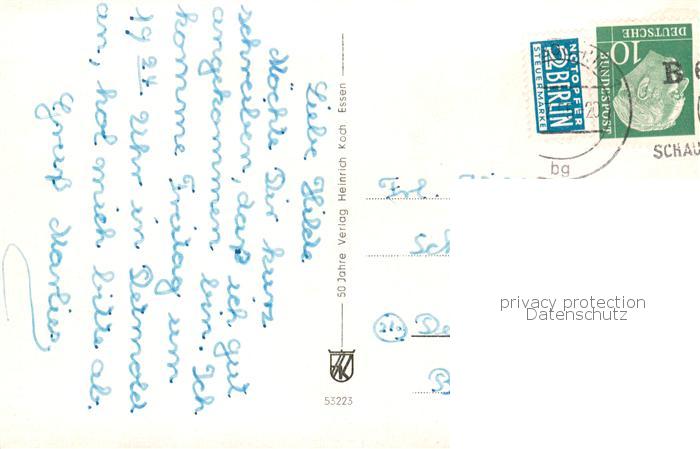 Liebe Hilde
Möchte Dir kurz
schreiben, daß ich gut
angekommen bin. Ich
komme Freitag um
19 24 Uhr in Detmold
an, hol mich bitte ab.
Gruß Marlies
50 Jahre Verlag Heinrich Koch, Essen
53223
NOTOPFER
2 BERLIN
STEUERMARKE
DEUTSCHE
BUNDESPOST
10
B
SCHAU
bg
Frl.
Sch
(21a) De
privacy protection
Datenschutz